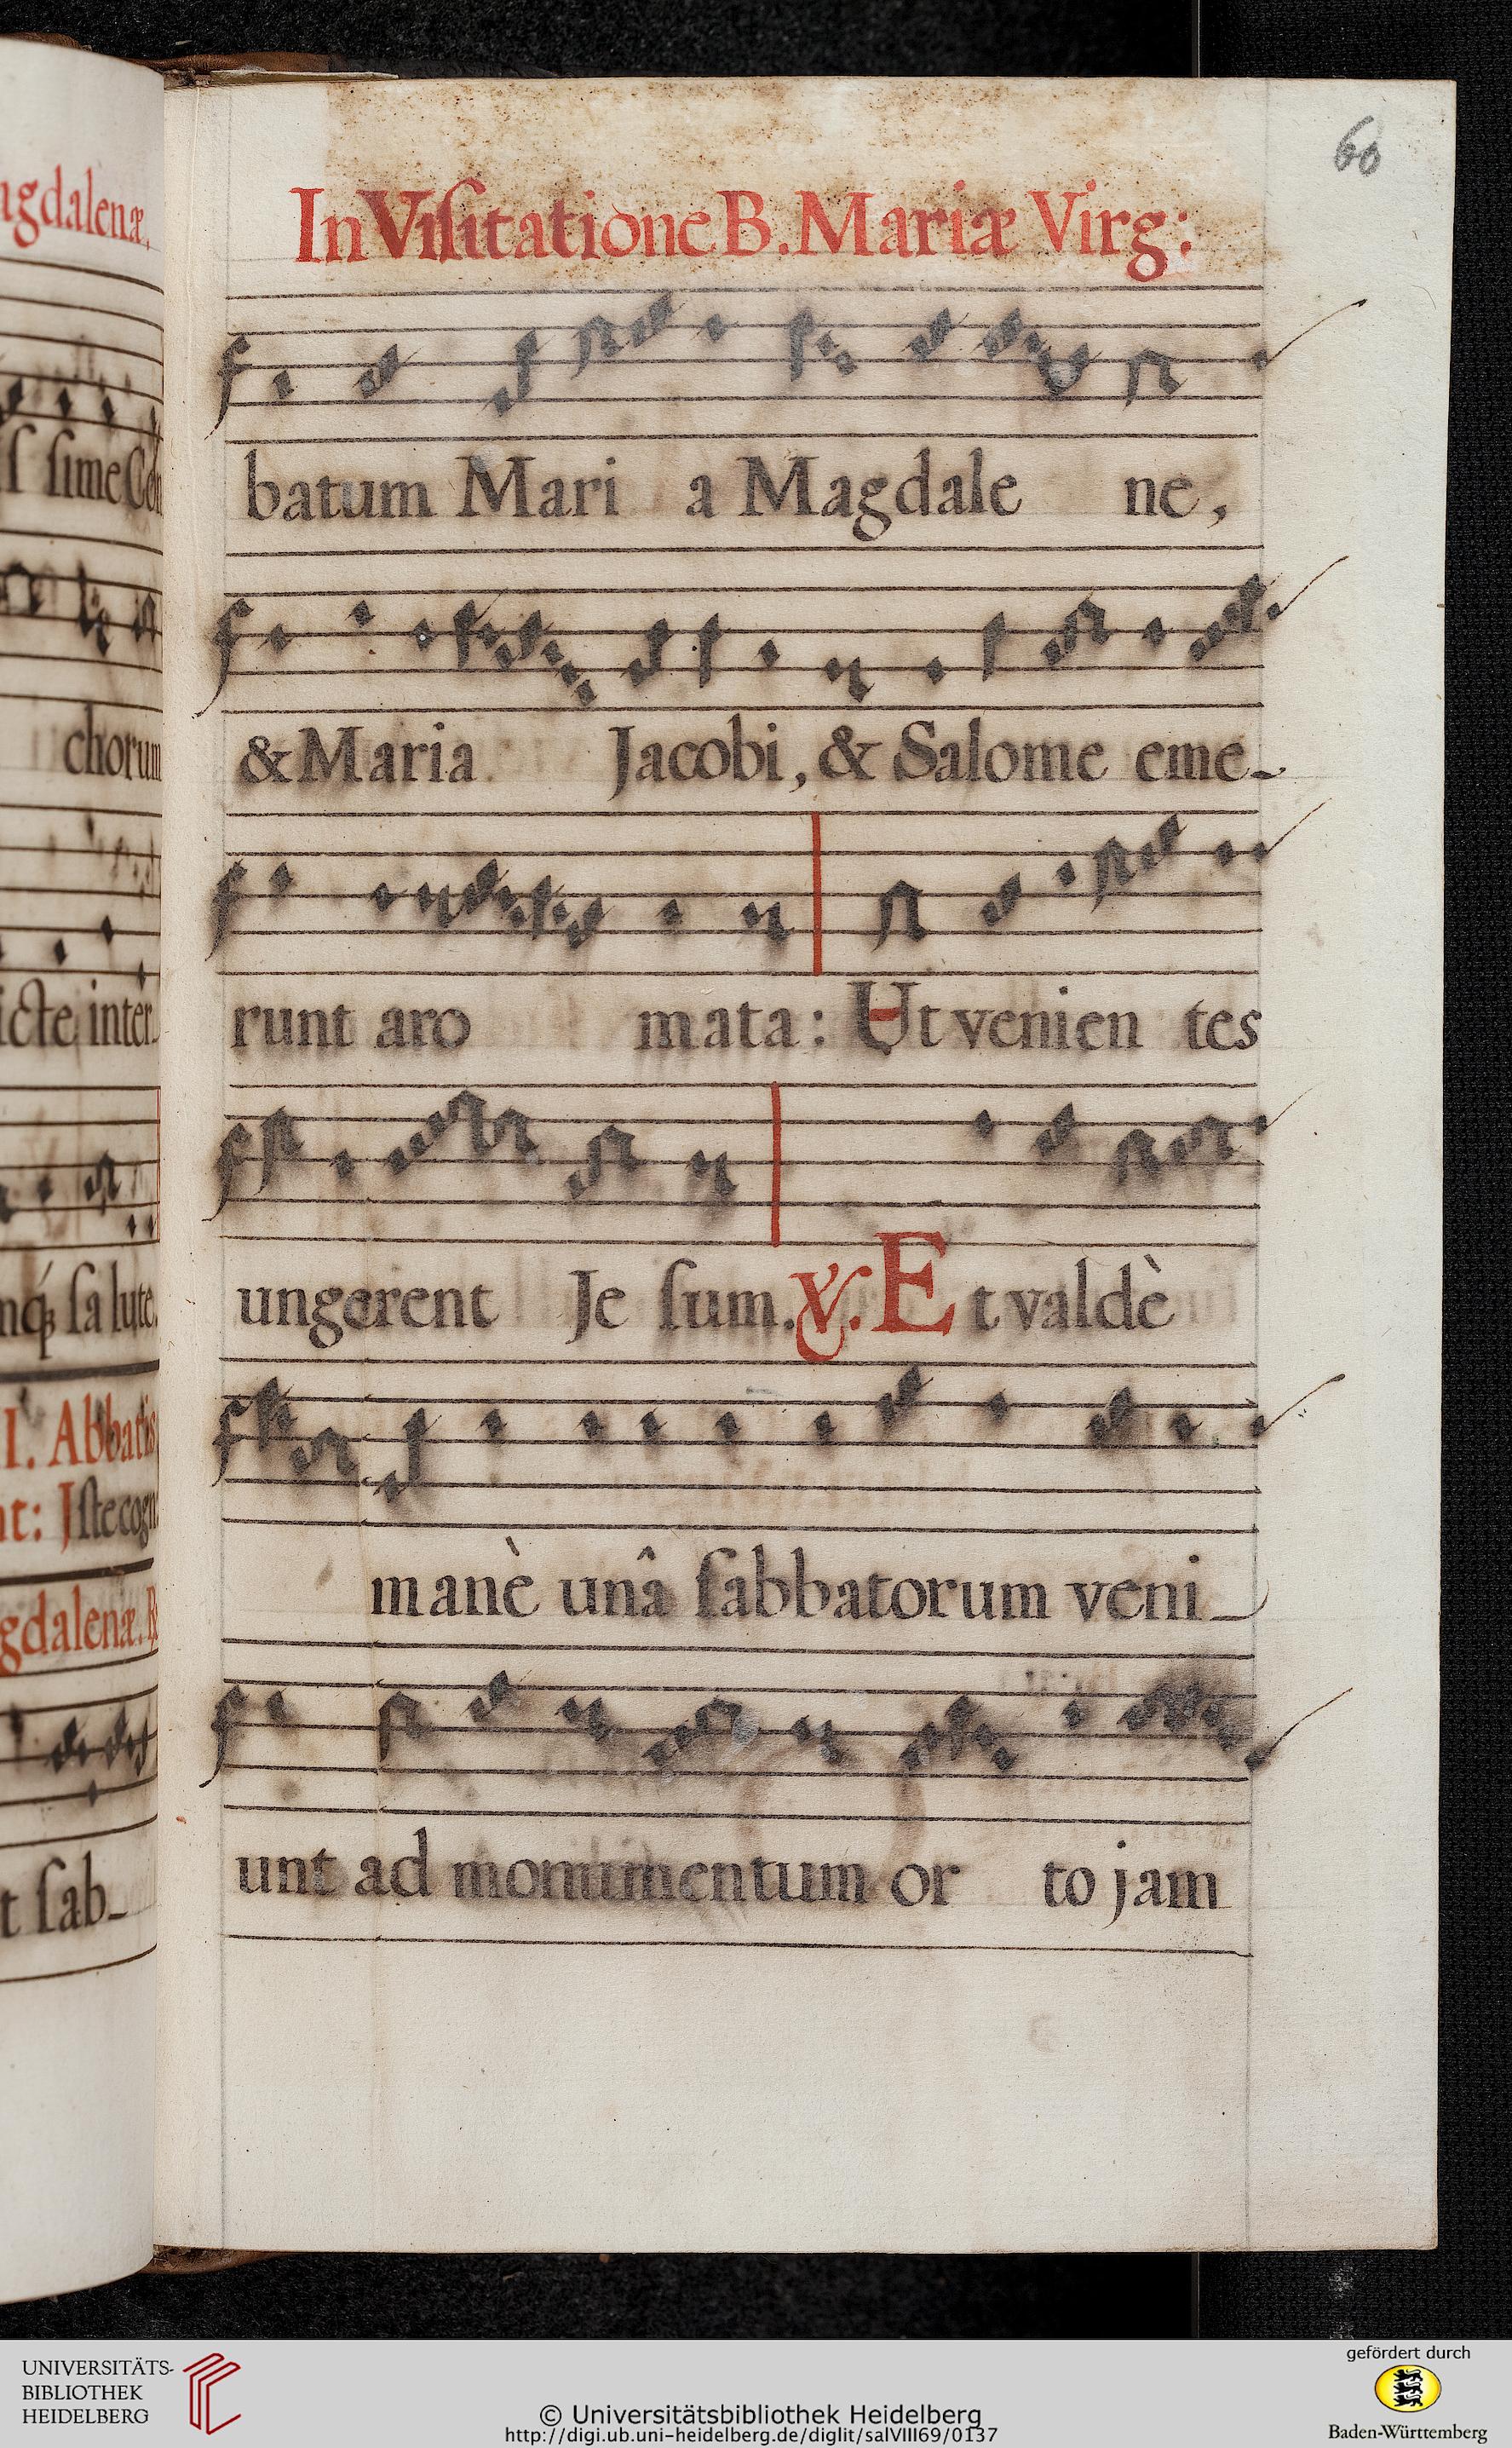 gdalenæ.
ſ ſime
chorum
icte inter
ſalute.
I. Abbatis
nt: Jſte cogn
gdalenæ. ℟
t ſab-
60
In Viſitatione B. Mariæ Virg:
batum Mari a Magdale ne,
& Maria Jacobi, & Salome eme-
runt aro mata: Ut venien tes
ungerent Je ſum. ℣. Et valdè
manè unâ ſabbatorum veni-
unt ad monumentum or to jam
UNIVERSITÄTS-
BIBLIOTHEK
HEIDELBERG
© Universitätsbibliothek Heidelberg
http://digi.ub.uni-heidelberg.de/diglit/salVIII69/0137
gefördert durch
Baden-Württemberg